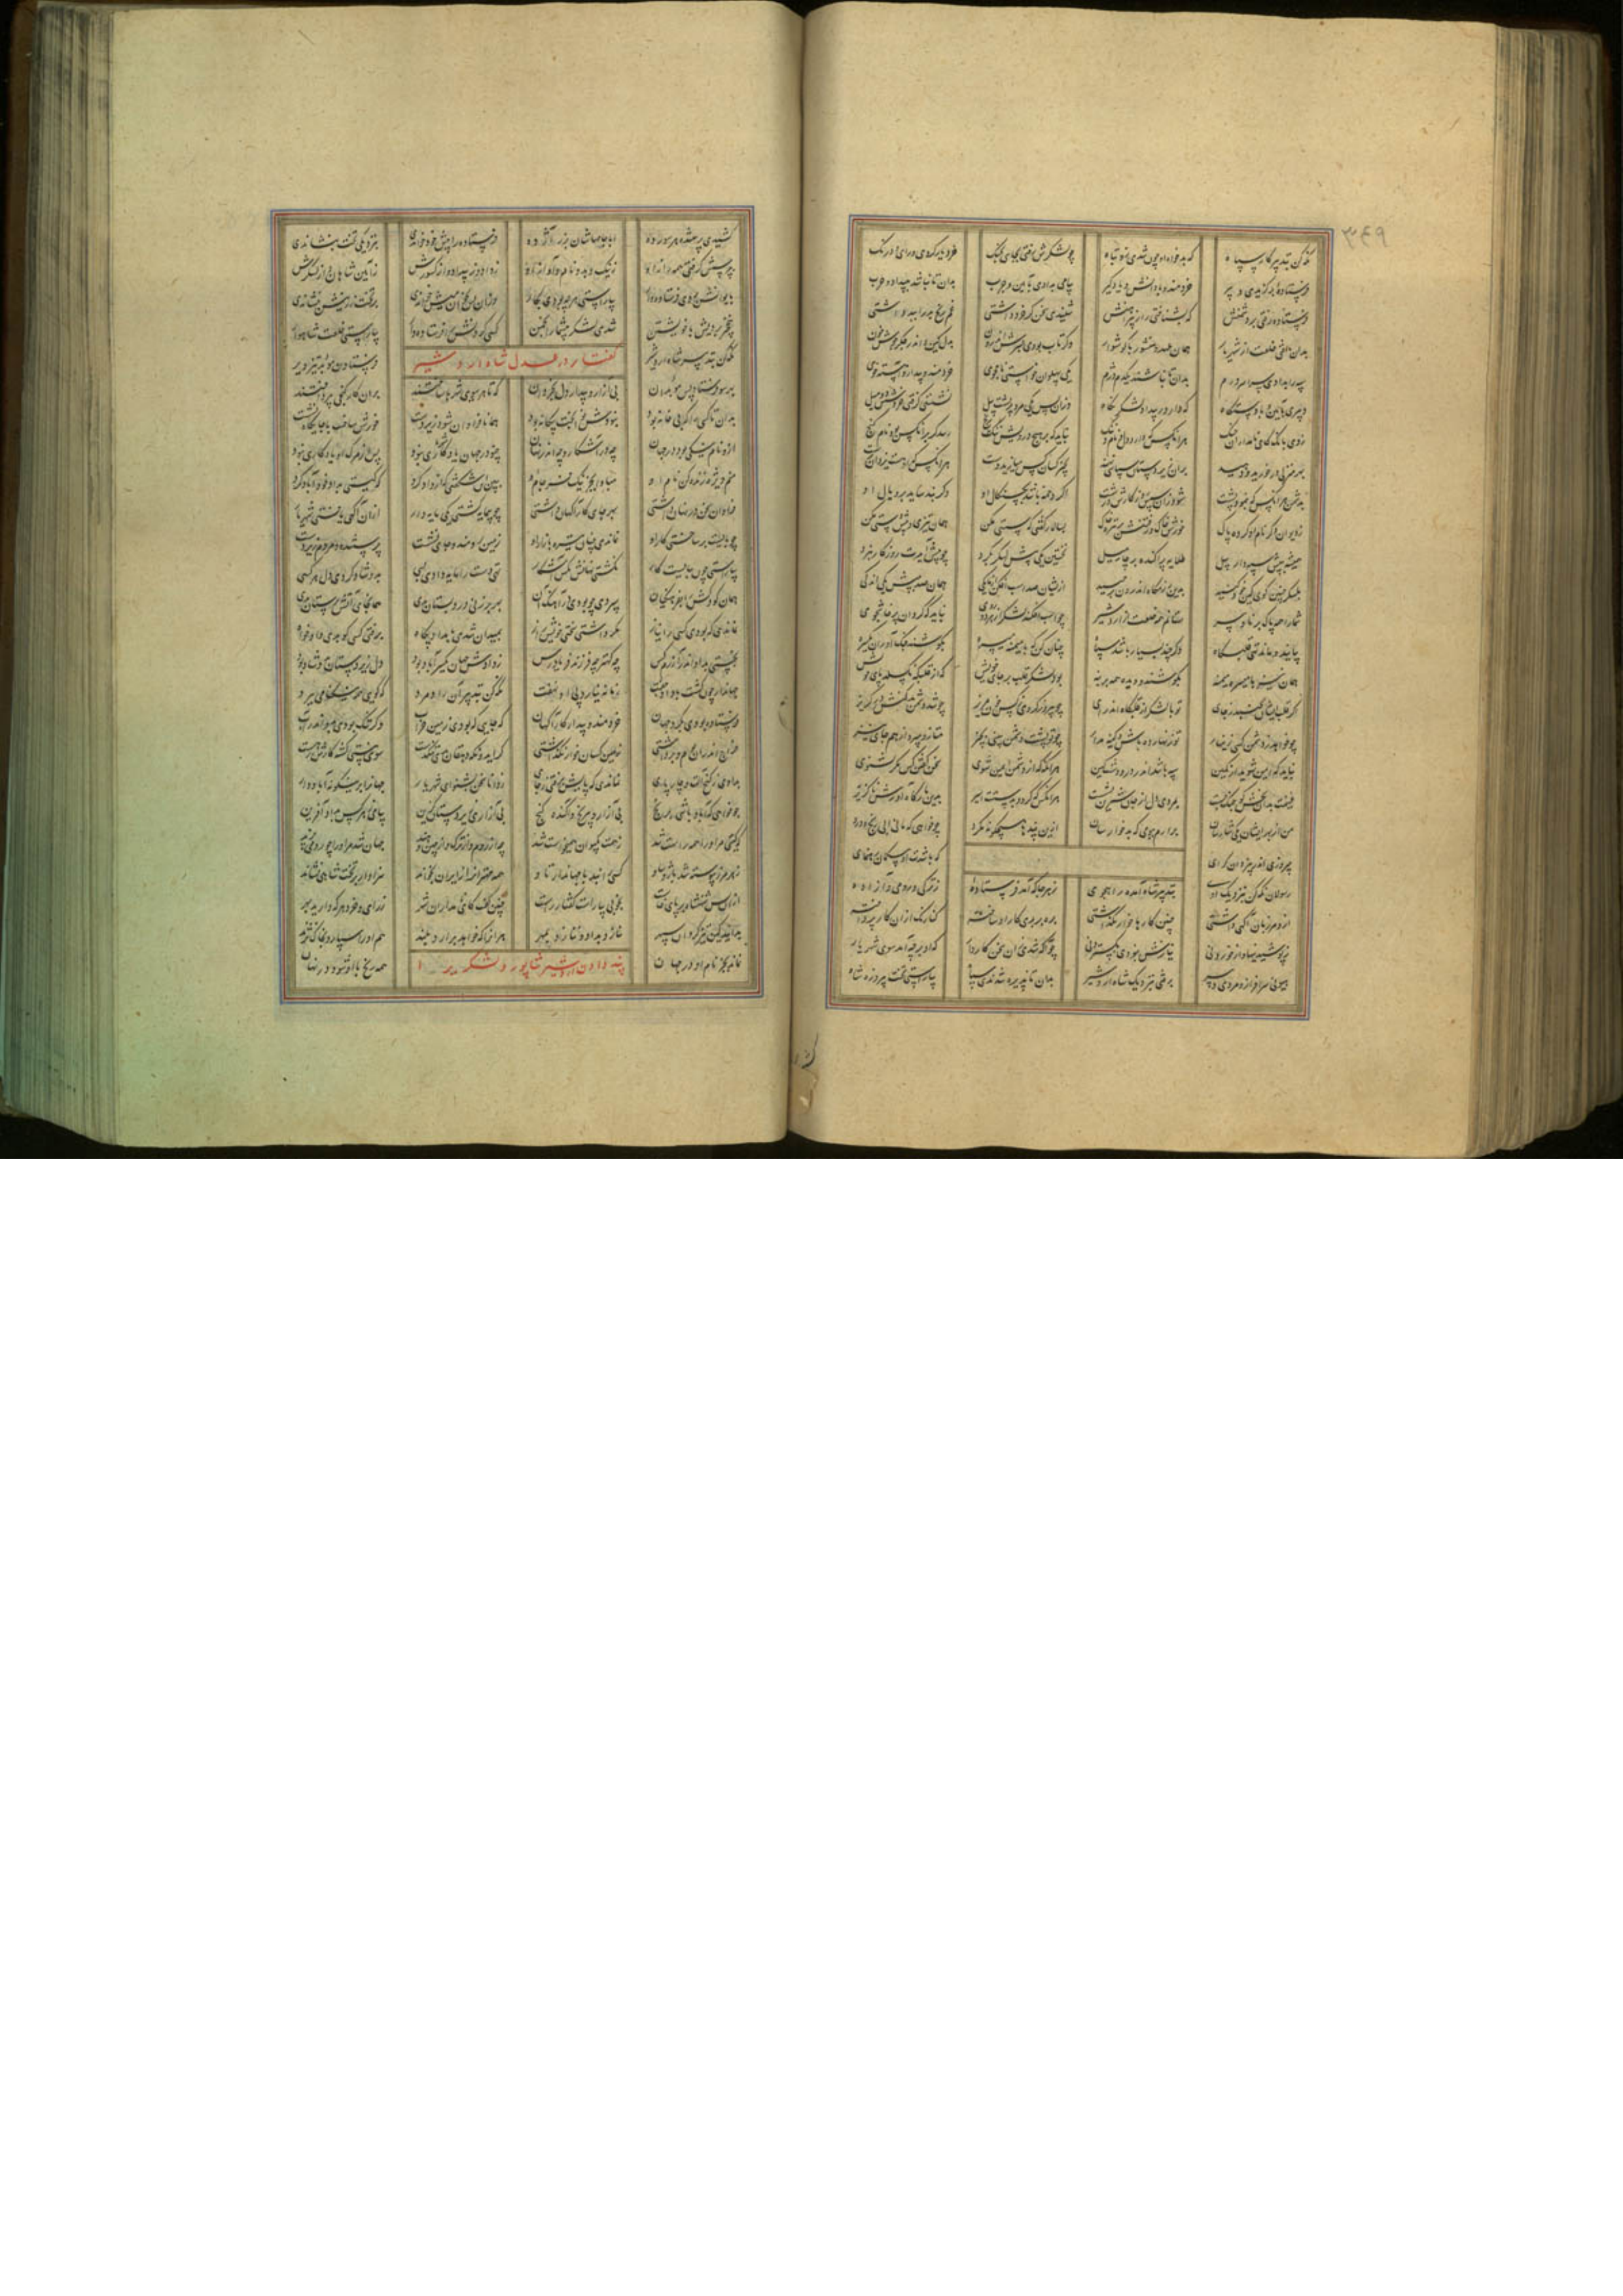 ۳۶۹
نگه کن تدبیر کار سپاه که بدخواه او چون شدی زو تباه چو لشکرش رفتی بجای بجنگ خرد یار کردی و رای و درنگ
فرستاده برگزیدی دبیر خردمند و با دانش و یادگیر پیامی بدادی بآیین و چرب بدان تا نباشد به بیداد حرب
فرستاده رفتی بر دشمنش که بشناختی راز پیراهنش شنیدی سخن گر خرد داشتی غم و رنج بد را ببد داشتی
بدان یافتی خلعت از شهریار همان عهد و منشور با گوشوار وگر تاب بودی بسرش اندرون بدل کین و اندر جگر جوش خون
سپه را بدادی سراسر درم بدان تا نباشند یکدم دژم یکی پهلوان خواستی نامجوی خردمند و بیدار و آهسته خوی
دبیری بآیین و با دستگاه که دارد ز بیداد لشکر نگاه وزان پس یکی مرد بر پشت پیل نشستی که رفتی خروشش دو میل
زدی بانگ کای نامداران جنگ هر آنکس که دارد دل و نام و ننگ نباید که بر هیچ درویش رنج رسد گر بر آنکس که دارد نام و گنج
بهر منزلی در خورید و دهید بران زیردستان سپاسی نهید بچیز کسان کس میازید دست هر آنکس که او هست یزدان پرست
بدشمن هر آنکس که بنمود پشت شود زان سپس روزگارش درشت اگر دخمه باشد بچنگال او وگر بند ساید بر و یال او
ز دیوان دگر نام او کرده پاک خورش خاک و رفتنش بر تیره خاک بسالار گفتی که سستی مکن همان تیز و پیش دستی مکن
همیشه به پیش سپه دار پیل طلایه پراکنده بر چار میل نخستین یکی پیش لشکر بگرد چو پیش آیدت روزگار نبرد
بلشکر چنین گوی کین خود کیند بدین رزمگاه اندرون بر چیند از ایشان صد اسب افکن از ما یکی همان صد به پیش یکی اندکی
شما را همه پاک برنا و پیر ستانم همه خلعت از اردشیر چو اسب افکند لشکر از هر دو روی نباید که گردان پرخاشجوی
بیایند و ماند تهی قلبگاه وگر چند بسیار باشد سپاه چنان کن که با میمنه میسره بکوشند جنگ آوران یکسره
همان نیز با میسره میمنه بکوشند و دیده همه بر بنه بود لشکر قلب بر جای خویش که از قلبگه نگسلد پای خویش
گر قلب ایشان بجنبد ز جای تو با لشکر از قلبگاه اندر آی چو پیروز گردی ز کس خون مریز چو شد دشمن بدکنش در گریز
چو خواهد ز دشمن کسی زینهار تو زنهار ده باش و کینه مدار چو تو پشت دشمن ببینی بچیز متاز و مپرداز هم جای نیز
نباید که ایمن شوید از کمین سپه باشد اندر در و دشت کین هر آنگه که از دشمن ایمن شوی سخن گفتن کس مگر نشنوی
غنیمت بدان بخش کو جنگ جست بمردی دل از جان شیرین بشست هر آنکس که گردد بدستت اسیر بدین بارگاه آورش ناگزیر
من از بهر ایشان یکی شارسان برآرم ببومی که بد خارسان ازین پندها هیچگونه مگرد چو خواهی که مانی ابی رنج و درد
بپیروزی اندر بیزدان گرای که باشدت او بیگمان رهنمای
رسولان نگه کن بنزدیک اوی بتدبیر شاه آمده راهجوی ز هر جا که آمد فرستاده ز ترکی و رومی و آزاده
ازو مرزبان آگهی داشتی چنین کارها خوار نگذاشتی بره بر بدی کار او ساخته کنارنگ ازان کار پرداخته
ز پوشیدنیها و از خوردنی نیازش نبودی بگستردنی چو آگه شدی زان سخن کاردار که او بر چه آمد سوی شهریار
هیونی سرافراز و مردی دبیر برفتی بنزدیک شاه اردشیر بدان تا پذیره شدندی سپاه بیاراستی تخت پیروزه شاه
کشیدی پرستنده هر سو رده ابا جامهاشان بزر آژده فرستاده را پیش خود خواندی بنزدیکی تخت بنشاندی
بپرسش گرفتی همه راز او ز نیک و بد و نام و آواز او ز داد و ز بیداد و از کشورش ز آیین شاهان و از لشکرش
بایوانش بردی فرستاده وار بیاراستی هرچه بودی بکار وزان پس بخوان و میش خواندی بر تخت زرینش بنشاندی
بنخچیر بردیش با خویشتن شدی لشکر بیشمار انجمن گسی کردنش را فرستاده وار بیاراستی خلعت شاهوار
گفتار در عدل شاه اردشیر
نگه کن تدبیر شاه اردشیر فرستادن موبد تیزویر
بهر سو فرستاد پس موبدان بی آزار و بیدار دل بخردان که تا هر سوی شهرها ساختند بران کار گنجی بپرداختند
بدان تا کسی را که بی خانه بود نبودش نوا بخت بیگانه بود همان تا فراوان شود زیردست خورش ساخت با جایگاه نشست
ازو نام نیکی بود در جهان چه در آشکار و چه اندر نهان چنو در جهان یادگاری نبود پس از مرگ او یادگاری نبود
منم ویژه زنده کن نام او مبادا بجز نیک فرجام او ببین این شگفتی که او داد کرد که گیتی بداد خود آباد کرد
فراوان سخن در نهان داشتی بهر جای کارآگهان داشتی چو بی مایه گشتی یکی مایه دار ازان آگهی یافتی شهریار
چو بایست بر ساختی کار او نماندی چنان تیره بازار او زمین برومند و جای نشست پرستنده و مردم زیردست
بیاراستی چون ببایست کار نگشتی نهانش بکس آشکار تهی دست را مایه دادی بسی بدو شاد کردی دل هر کسی
همان کودکش را بفرهنگیان سپردی چو بودی ز آهنگ آن بهر برزنی در دبستان بدی همان جای آتش پرستان بدی
نماندی که بودی کسی را نیاز نگه داشتی سختی خویش راز بمیدان شدی بامداد پگاه برفتی کسی کو بدی دادخواه
نجستی بداد اندر آزرم کس چه کهتر چه فرزند فریادرس ز دادش جهان یکسر آباد بود دل زیردستان بدو شاد بود
جهاندار چون گشت با داد جفت زمانه نیارد پی او نهفت نگه کن تدبیر آن راد مرد که گویی همه نیکنامی ببرد
فرستاده بودی بگرد جهان خردمند و بیدار کارآگهان که جایی که بودی زمین خراب وگر تنگ بودی برود اندر آب
خراج اندران بوم برداشتی زمین کسان خوار نگذاشتی گر ایدونکه دهقان بدی تنگدست سوی نیستی گشته کارش ز هست
بدادی ز گنج آلت و چارپای نماندی که پایش برفتی ز جای ز دانا سخن بشنو ای شهریار جهان را برین گونه آباد دار
چو خواهی که آباد باشی ز رنج بی آزار و بی رنج و آگنده گنج بی آزاری زیردستان گزین بیابی ز هر کس بداد آفرین
چو گیتی مر او را همه راست شد ز همت کیوان همی خواست شد چه از روم و از ترک و از چین و هند جهان شد مر او را چو رومی پرند
ز هر مرز پیوسته شد باژ و ساو کسی را نبد با جهاندار تاو همه مهتران را ز ایران بخواند سزاوار بر تخت شاهی نشاند
ازان پس شهنشاه بر پای خاست بخوبی بیاراست گفتار راست چنین گفت کای نامداران شهر ز رای و خرد هر که دارید بهر
بدانید کین تیز گردان سپهر ننازد بداد و نیازد بمهر هر آنرا که خواهد برآرد بلند هم او را سپارد بخاک نژند
نماند بجز نام او در جهان همه رنج با او شود در نهان
پند دادن اردشیر شاپور و لشکر را